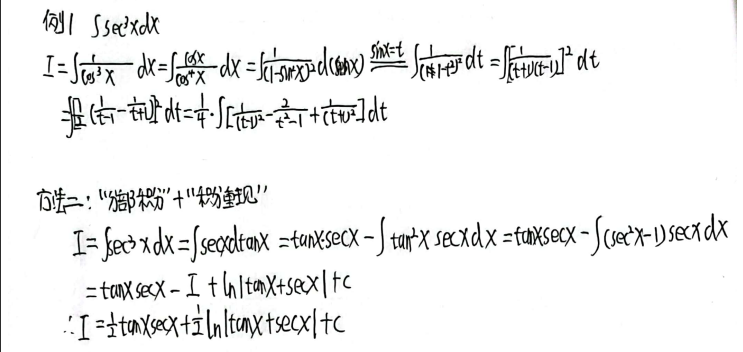 例1 ∫sec³xdx
I=∫1/cos³x dx=∫cosx/cos⁴x dx=∫1/(1-sin²x)² d(sinx) sinx=t ∫1/(1-t²)² dt=∫[1/(t+1)(t-1)]² dt
=∫[1/2(1/(t-1)-1/(t+1))]² dt=1/4·∫[1/(t-1)²-2/(t²-1)+1/(t+1)²]dt
方法二："分部积分"+"积分重现"
I=∫sec³xdx=∫secxdtanx=tanx·secx-∫tan²x secxdx=tanxsecx-∫(sec²x-1)secxdx
=tanxsecx-I+ln|tanx+secx|+c
∴I=1/2tanxsecx+1/2ln|tanx+secx|+c